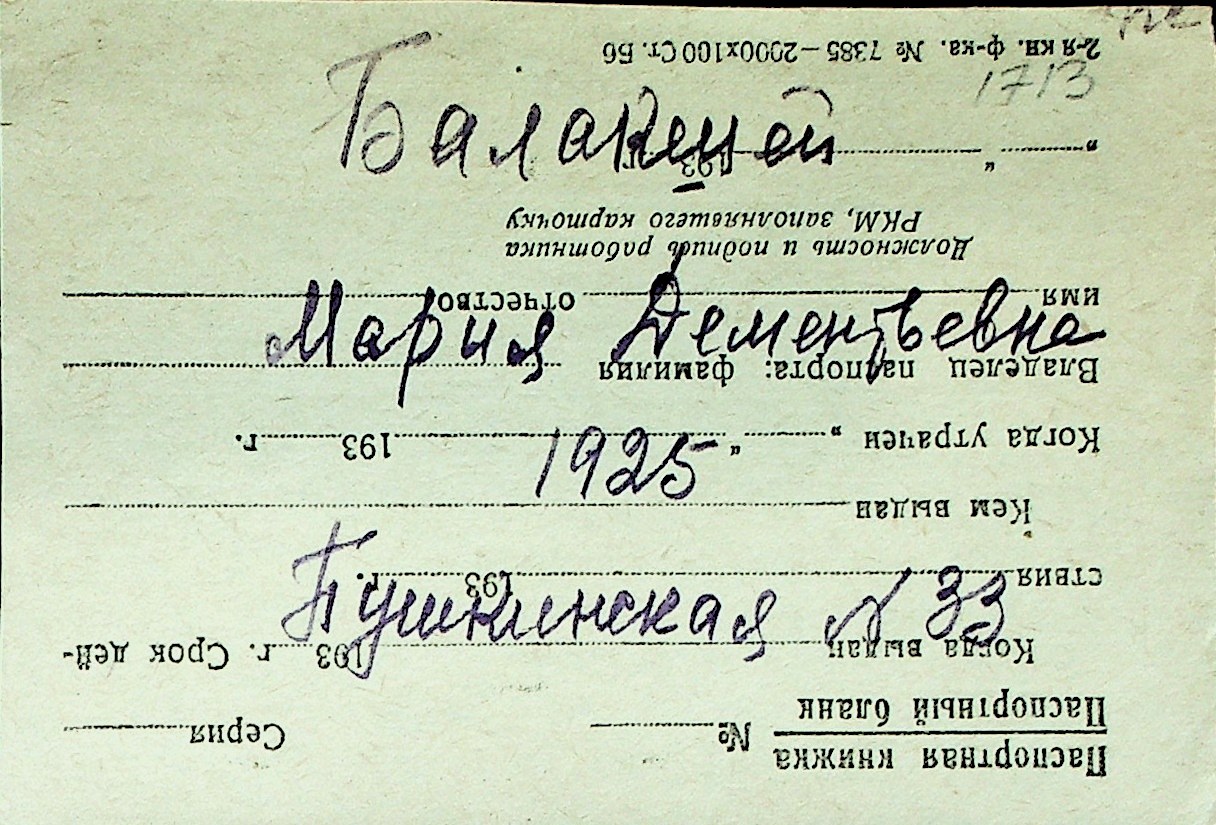 1713
Балакшей
Мария Дементьевна
1925
Пушкинская N 33
Паспортная книжка
Паспортный бланк
№ Серия
Когда выдан 193 г. Срок дей-
ствия 193 г.
Кем выдан
Когда утрачен „ “ 193 г.
Владелец паспорта: фамилия
имя отчество
Должность и подпись работника
РКМ, заполнявшего карточку
„ “ 193 г.
2-я кн. ф-ка. № 7385—2000х100 Ст. Бб